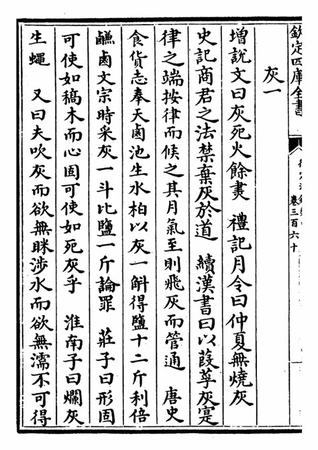 欽定四庫全書
卷三百六十
灰一
增說文曰灰死火餘㶳 禮記月令曰仲夏無燒灰
史記商君之法禁棄灰於道 續漢書曰以葭莩灰寔
律之端按律而候之其月氣至則飛灰而管通 唐史
食貨志奉天鹵池生水柏以灰一斛得鹽十二斤利倍
鹻鹵文宗時采灰一斗比鹽一斤論罪 莊子曰形固
可使如槁木而心固可使如死灰乎 淮南子曰爛灰
生蠅 又曰夫吹灰而欲無眯涉水而欲無濡不可得